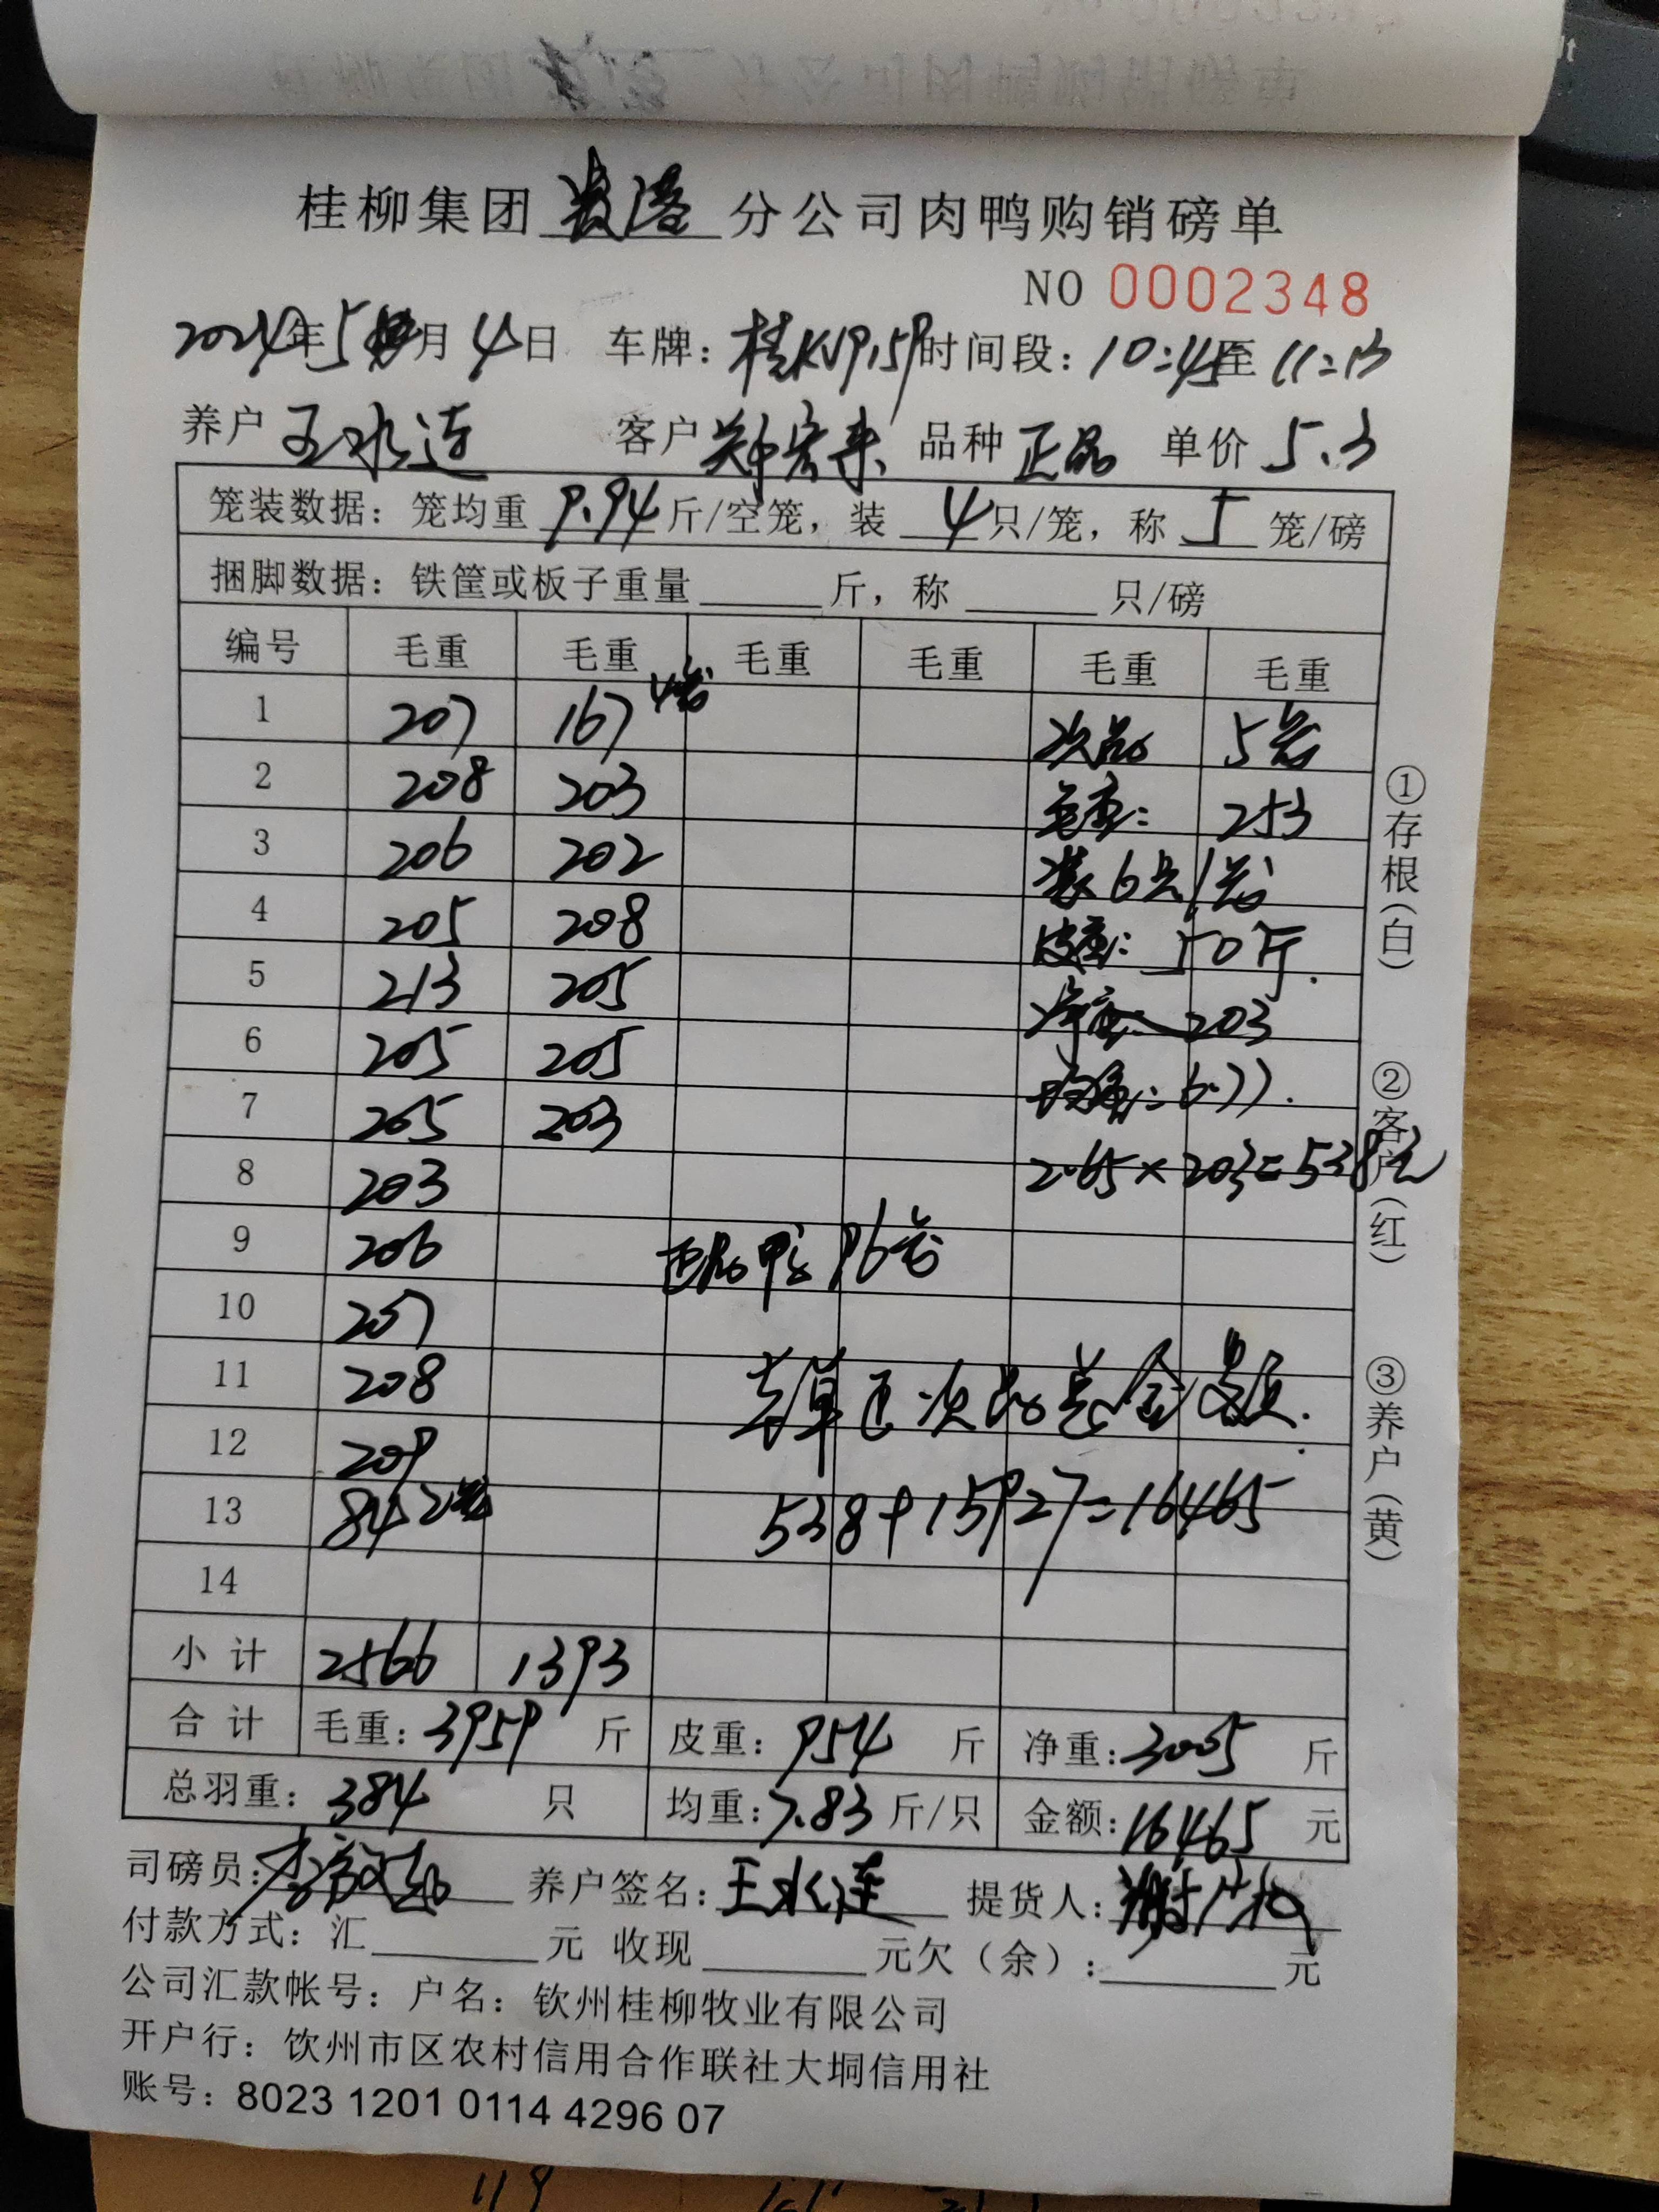 桂柳集团 贵港 分公司肉鸭购销磅单
NO 0002348
2024年5月4日 车牌：桂KV9159 时间段：10:45至11:13
养户 王水连 客户 郑宏来 品种 正品 单价 5.3
笼装数据：笼均重 9.94 斤/空笼，装 4 只/笼，称 5 笼/磅
捆脚数据：铁筐或板子重量 斤，称 只/磅
编号 毛重 毛重 毛重 毛重 毛重 毛重
1 207 167 4笼 次品 5笼
2 208 203 毛重： 253
3 206 202 装6只/笼
4 205 208 皮重：50斤.
5 213 205 净重：203
6 205 205 均重：6.77.
7 205 203
8 203 2.65×203=538元
9 206 正品鸭 96笼
10 207
11 208 本单正次品总金额.
12 209
13 84 2笼 538+15927=16465
14
小计 2566 1393
合计 毛重：3959 斤 皮重：954 斤 净重：3005 斤
总羽重：384 只 均重：7.83 斤/只 金额：16465 元
司磅员： 养户签名：王水连 提货人：
付款方式：汇 元 收现 元欠（余）： 元
公司汇款帐号：户名：钦州桂柳牧业有限公司
开户行：饮州市区农村信用合作联社大垌信用社
账号：8023 1201 0114 4296 07
①存根（白）
②客户（红）
③养户（黄）
119